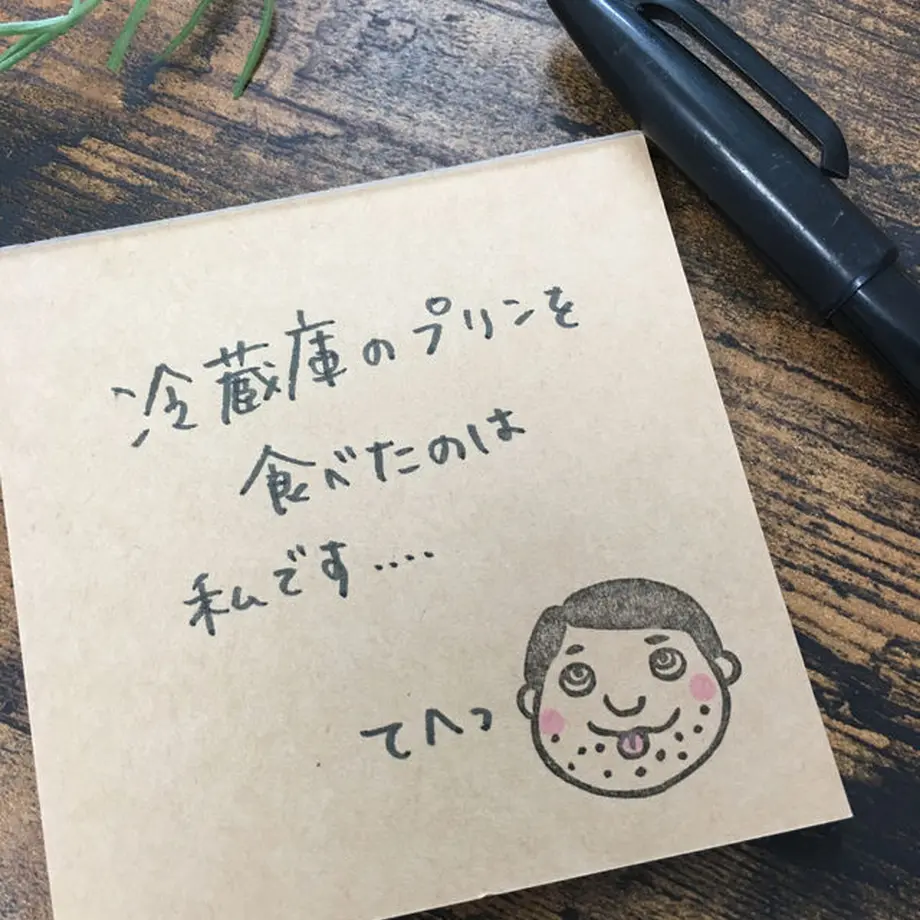 冷蔵庫のプリンを
食べたのは
私です‥‥
てへっ